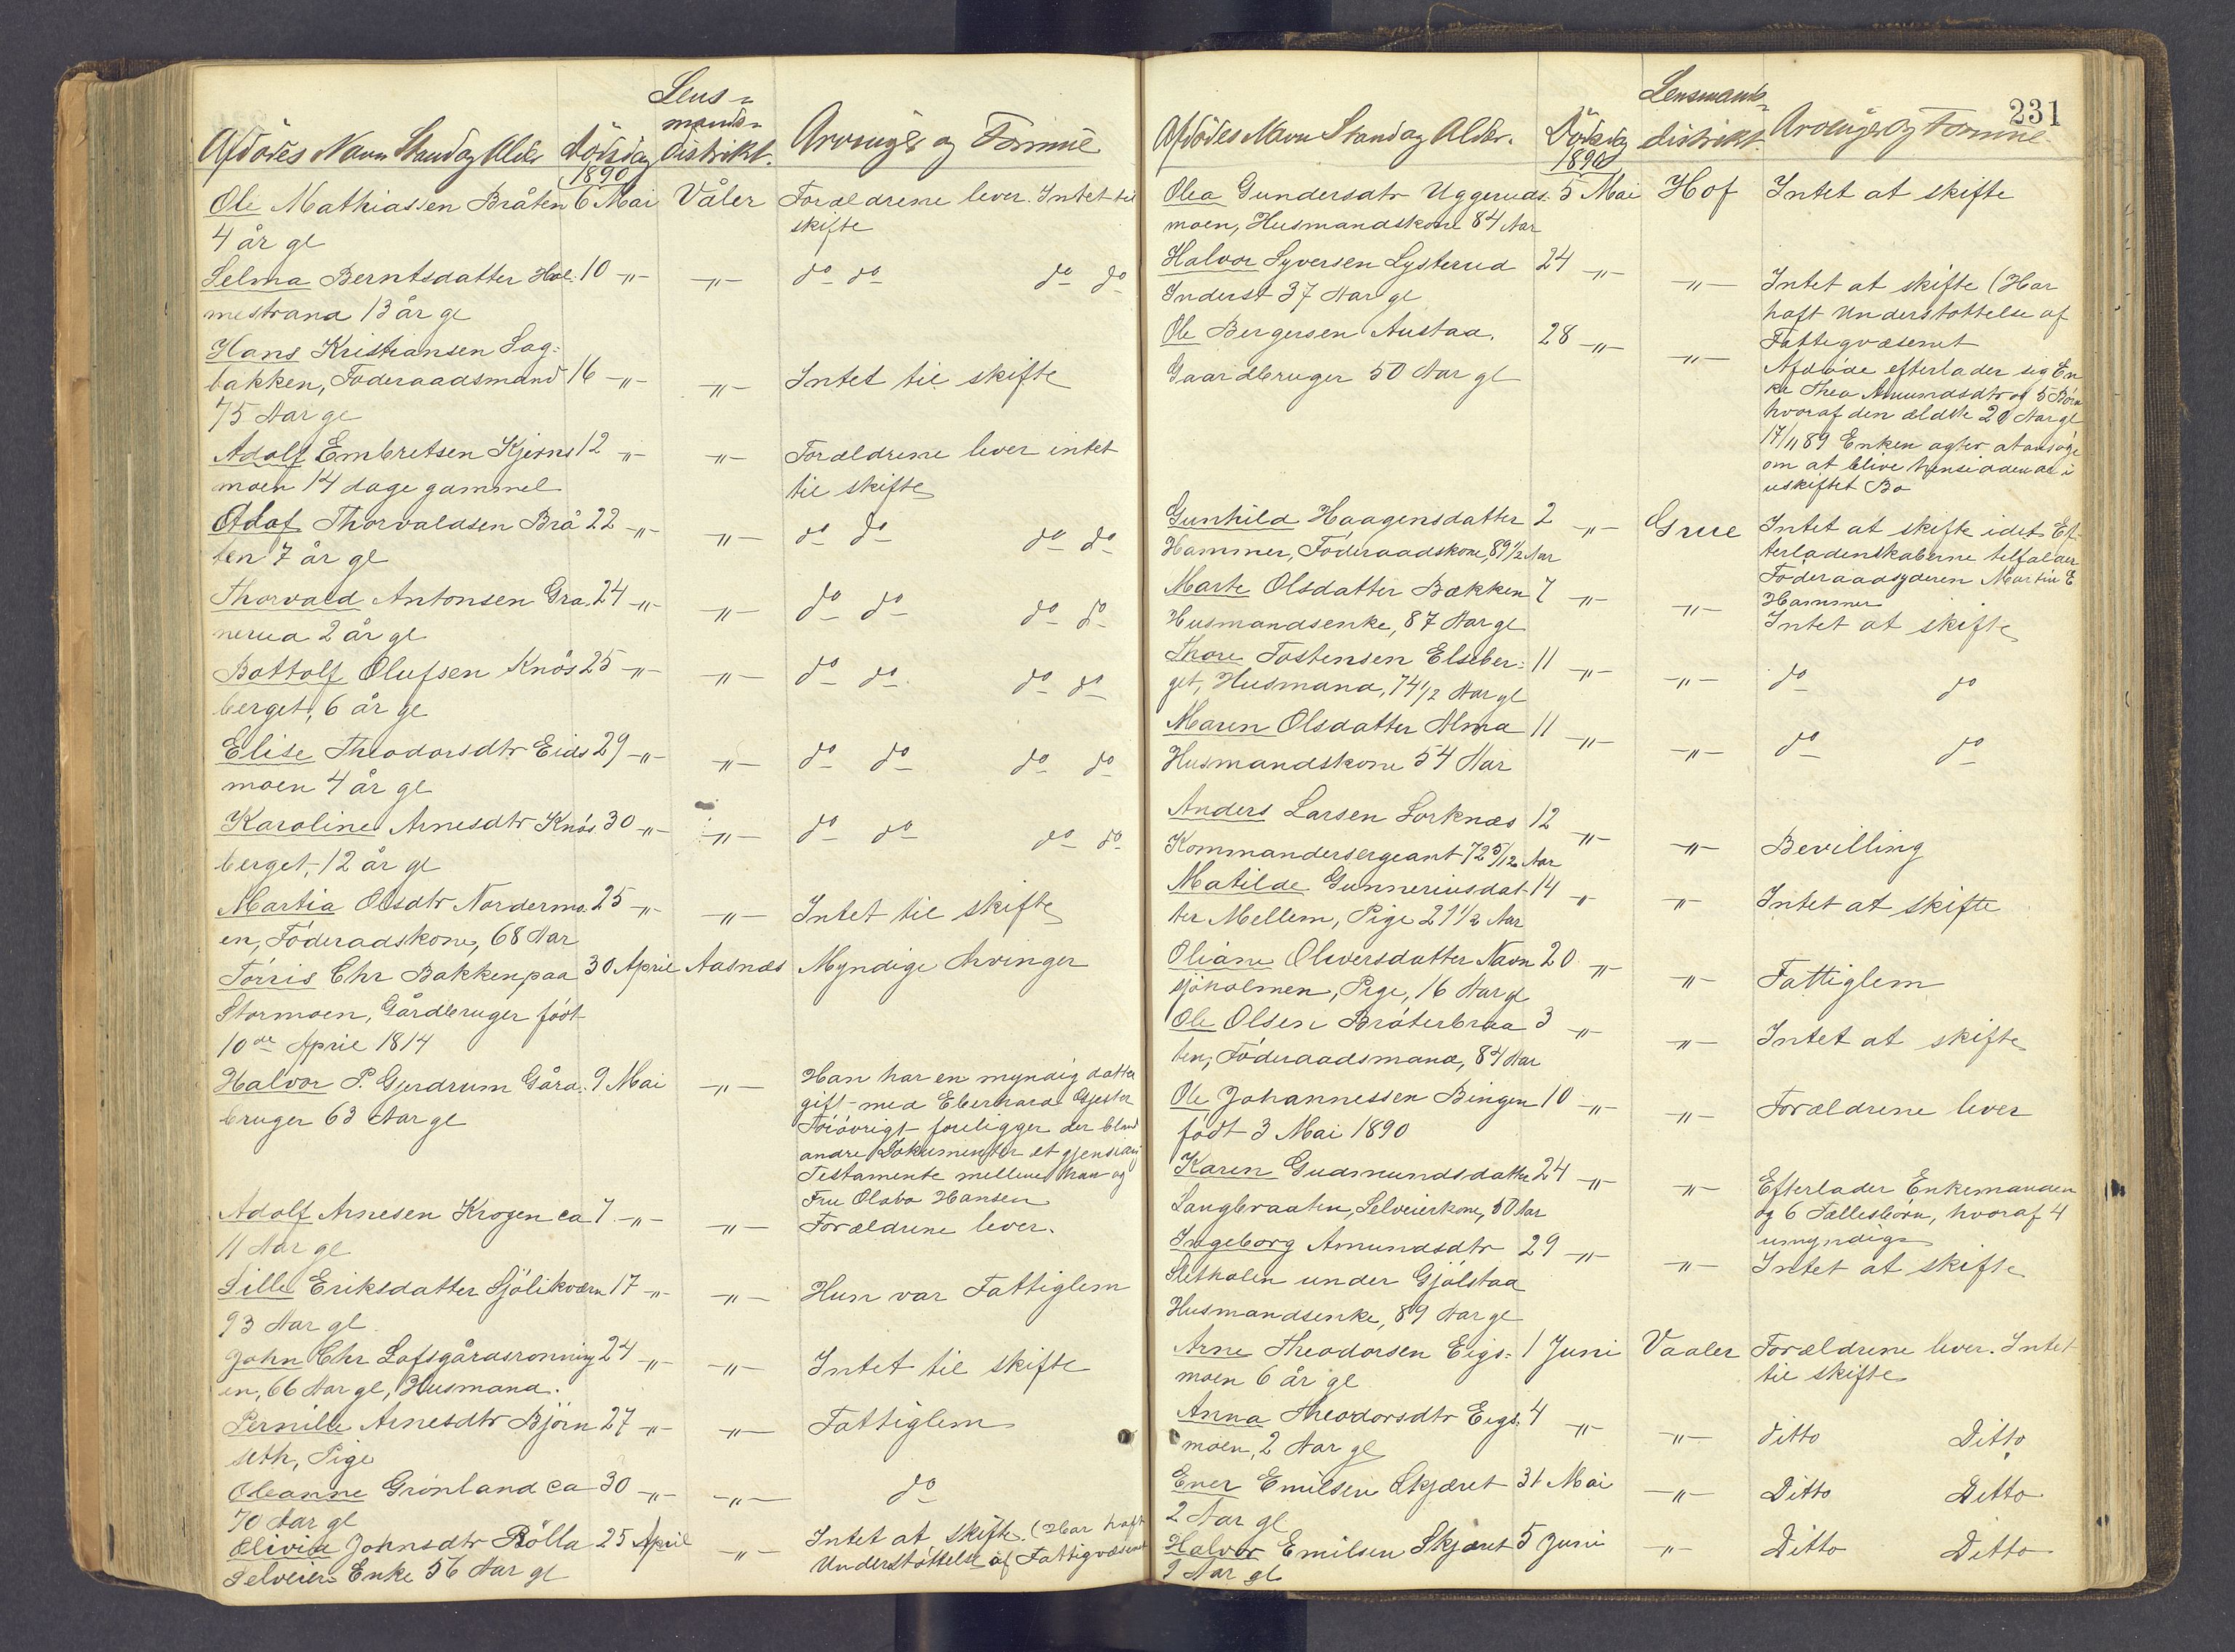 Lens-
mands-
Afdødes Navn Stand og Alder Dödsdag distrikt. Arvinger og Formue
1890
Ole Mathiassen Bråten 6 Mai Våler Forældrene lever. Intet til
4 år gl skifte
Selma Berntsdatter Hol- 10 -"- -"- do do do do
mestrand 13 år gl
Hans Kristiansen Sag-
bakken, Föderaadsmand 16 -"- -"- Intet til skifte
75 Aar gl
Adolf Embretsen Kjerns 12 -"- -"- Forældrene lever intet
moen 14 dage gammel til skifte
Olaf Thorvaldsen Brå 22 -"- -"- do do do do
ten 7 år gl
Thorvald Antonsen Gra- 24 -"- -"- do do do do
nerud 2 år gl
Bottolf Olufsen Knös 25 -"- -"- do do do do
berget, 6 år gl
Elise Theodorsdtr Eids 29 -"- -"- do do do do
moen 4 år gl
Karoline Arnesdtr Knös 30 -"- -"- do do do do
berget, 12 år gl
Martia Olsdtr Nordermo 25 -"- -"- Intet til skifte
en, Föderadskone, 68 Aar
Törris Chr Bakken paa 30 April Aasnæs Myndige Arvinger
Stormoen, Gårdbruger födt
10de April 1814
Halvor P. Gjerdrum Gård- 9 Mai -"- Han har en myndig datter
bruger 63 Aar gl gift med Eberhard Gjester
Foröövrigt foreligger der bland
andre Dokumenter et gjensidig
Testamente mellem han og
Fru Olava Hansen
Adolf Arnesen Krogen ca 7 -"- -"- Forældrene lever.
11 Aar gl
Sille Eriksdatter Sjölikværn 17 -"- -"- Hun var Fattiglem
93 Aar gl.
John Chr Lofsgårdsrönning 24 -"- -"- Intet til skifte
en, 66 Aar gl, Husmand.
Pernille Arnesdtr Björn 27 -"- -"- Fattiglem
seth, Pige
Oleanne Grönland ca 30 -"- -"- do
70 Aar gl
Olivia Johnsdtr Rölla 25 April -"- Intet at skifte. (Har haft
Selveier Enke 56 Aar gl Understöttelse af Fattigvæsenet
231
Lensmands-
Afdödes Navn Stand og Alder. Dödsdag distrikt. Arvinger og Formue
1890
Olea Gundersdtr Uggeruds- 5 Mai Hof Intet at skifte
moen, Husmandskone 84 Aar
Halvor Syversen Lysterud 24 -"- -"- Intet at skifte (Har
Inderst 37 Aar gl haft Understöttelse af
Fattigvæsenet
Ole Bergersen Austad. 28 -"- -"- Afdöde efterlader sig En
Gaardbruger 50 Aar gl ke Thea Amundsdtr og 5 Börn
hvoraf den ældste 20 Aar gl
17/11 89 Enken agter at ansöge
om at blive hensiddende i
uskiftet Bo
Gunhild Haagensdatter 2 -"- Grue Intet at skifte idet Ef-
Hammer, Föderaadskone, 89 1/2 Aar terladenskaberne tilfalder
Föderaadsyderen Martin E
Hammer
Marte Olsdatter Bækken 7 -"- -"- Intet at skifte
Husmandsenke, 87 Aar gl
Thore Tostensen Elseber- 11 -"- -"- do do
get, Husmand, 74 1/2 Aar gl
Maren Olsdatter Alma 11 -"- -"- do do
Husmandskone 54 Aar
Anders Larsen Sorknæs 12 -"- -"- Bevilling
Kommandersergeant 72 5/12 Aar
Matilde Gunneriusdat- 14 " -"- Intet at skifte
ter Mellem, Pige 21 1/2 Aar
Oliane Oliversdatter Navn 20 -"- -"- Fattiglem
sjöholmen, Pige, 16 Aar gl
Ole Olsen Bröterbraa 3 -"- -"- Intet at skifte
ten, Föderaadsmand, 84 Aar
Ole Johannessen Bingen 10 -"- -"- Forældrene lever
födt 3 Mai 1890
Karen Gudmundsdatter 24 -"- -"- Efterlader Enkemanden
Langbraaten, Selveierkone, 50 Aar og 6 Fællesbörn, hvoraf 4
umyndige
Ingeborg Amundsdtr 29 -"- -"- Intet at skifte
Sletholen under Gjölstad
Husmandsenke, 89 Aar gl
Arne Theodorsen Eigs- 1 Juni Vaaler Forældrene lever. Intet
moen 6 år gl til skifte
Anna Theodorsdtr Eigs- 4 -"- -"- ditto Ditto
moen, 2 Aar gl
Ener Emilsen Skjæret 31 Mai -"- Ditto Ditto
2 Aar gl
Halvor Emilsen Skjæret 5 Juni -"- Ditto Ditto
9 Aar gl